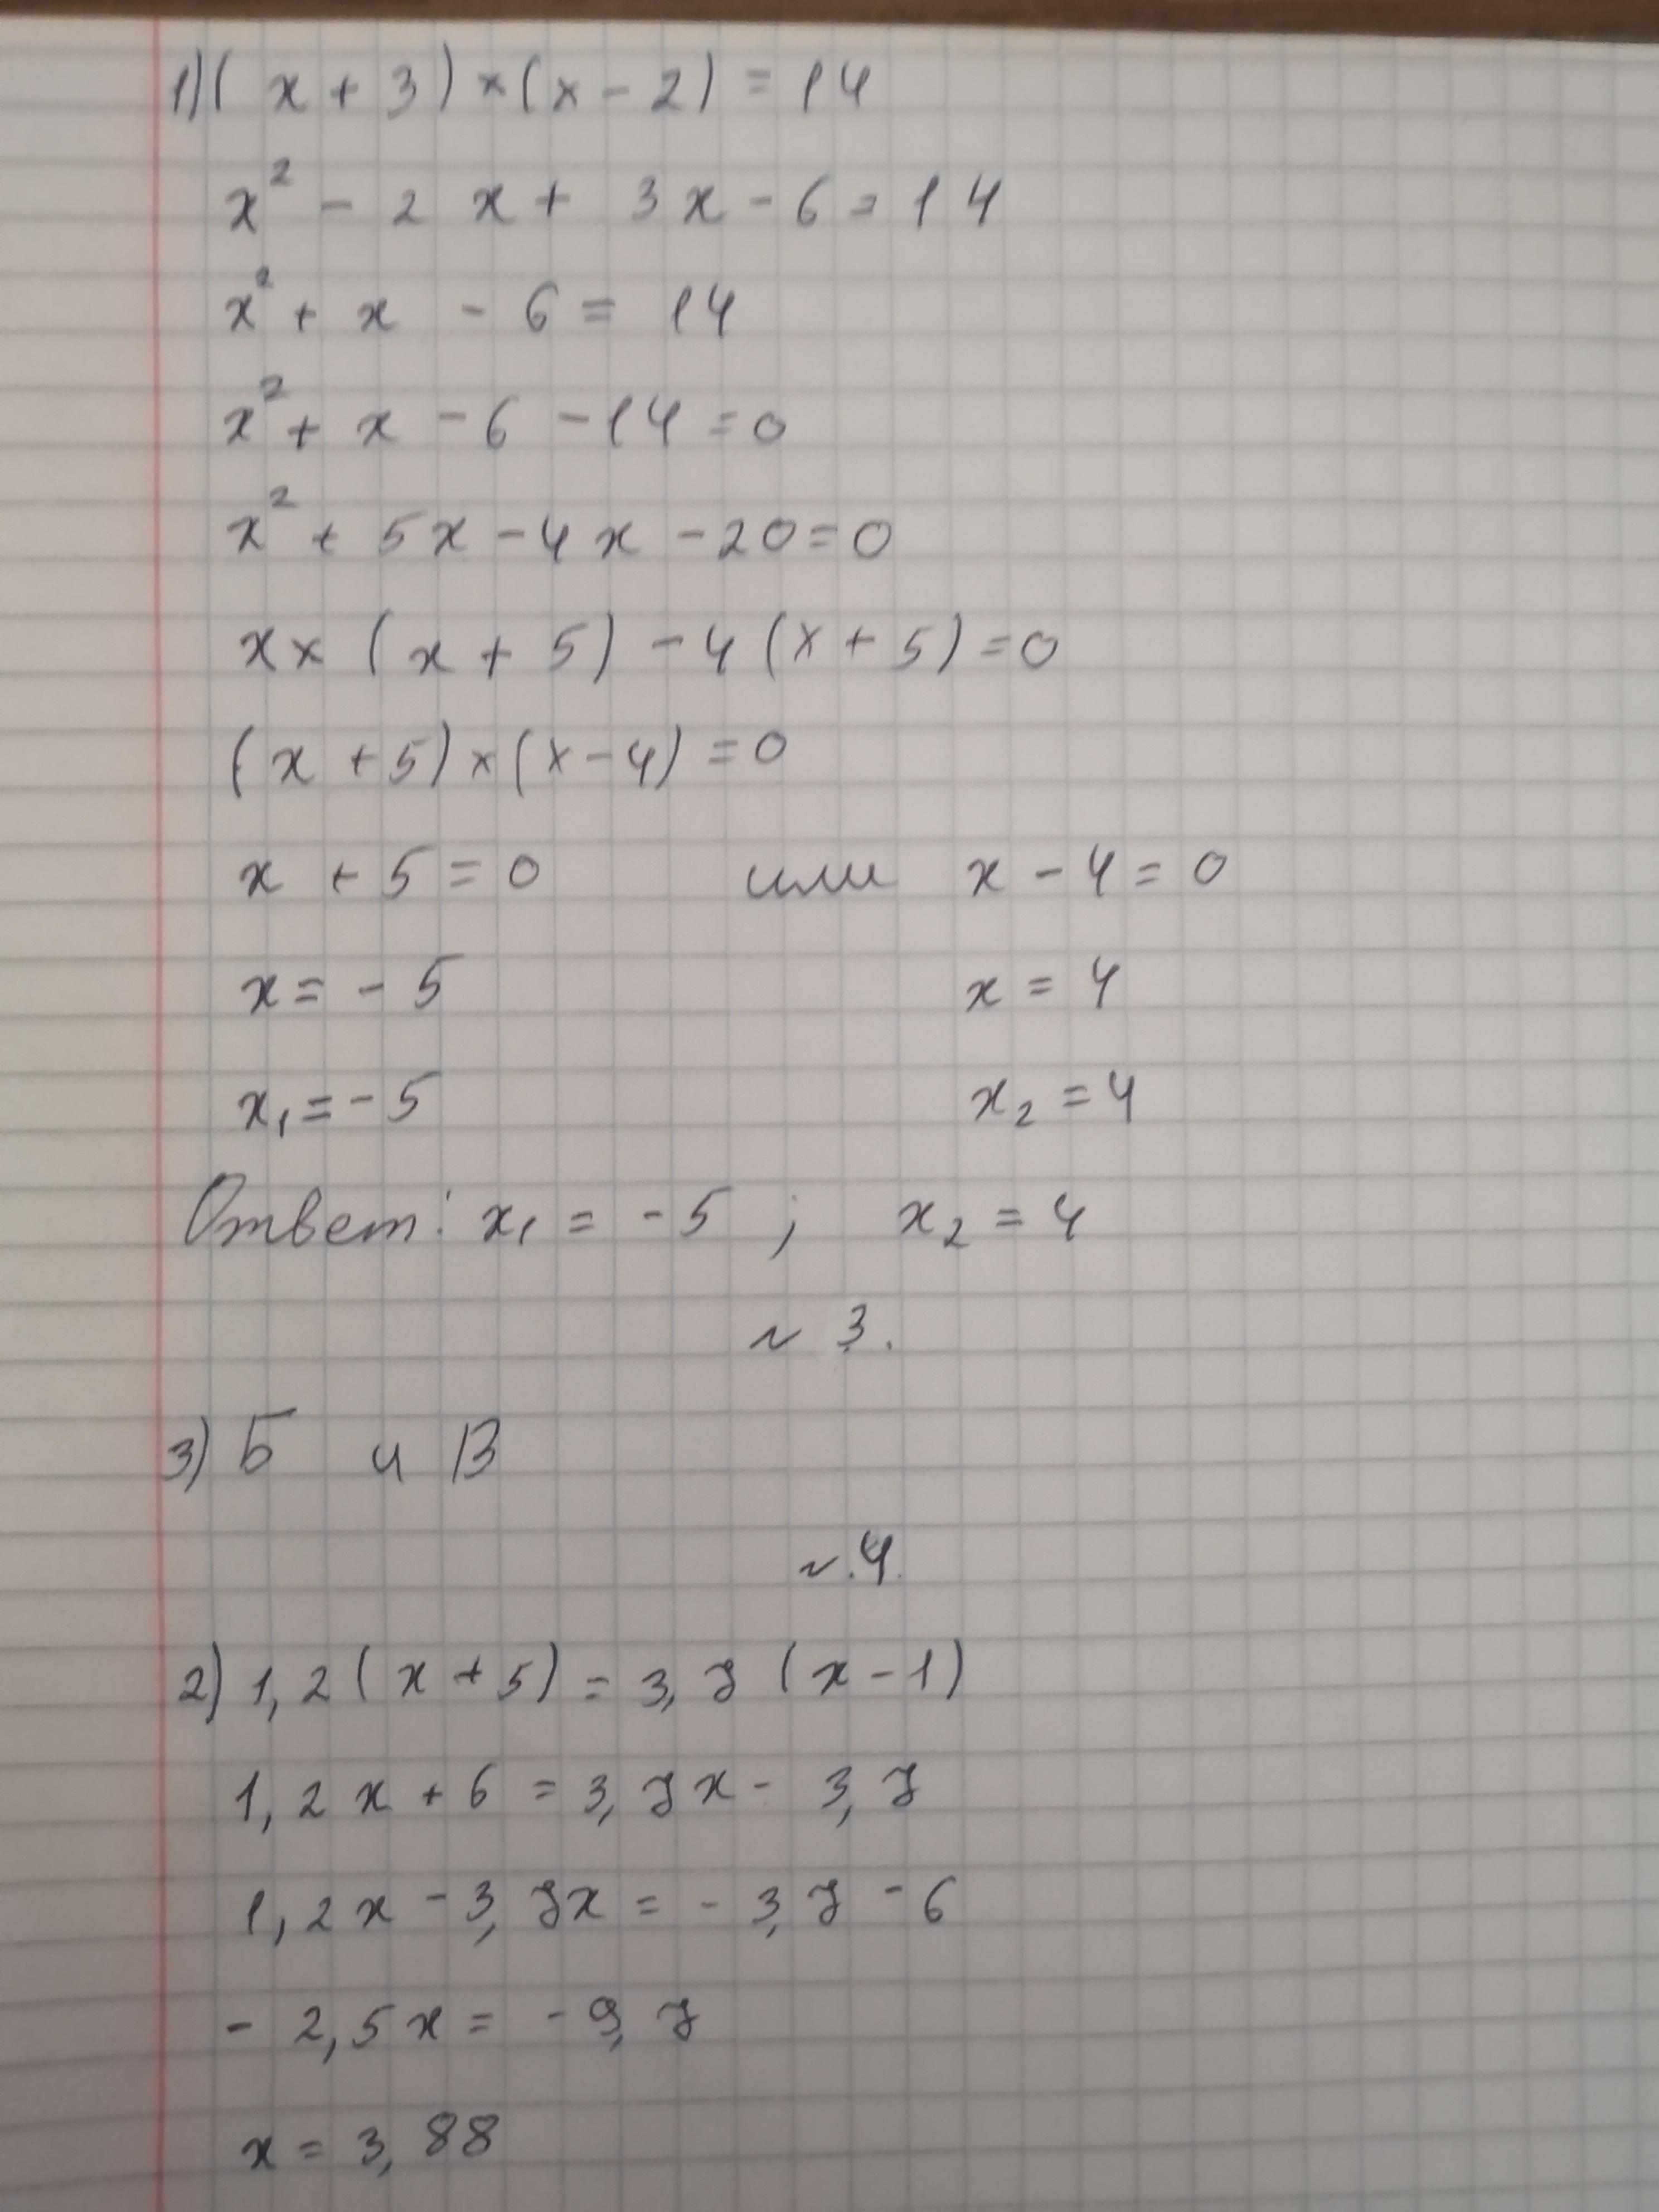 1) ( x + 3 ) × ( x - 2 ) = 14
x² - 2 x + 3 x - 6 = 14
x² + x - 6 = 14
x² + x - 6 - 14 = 0
x² + 5x - 4x - 20 = 0
x × ( x + 5 ) - 4 ( x + 5 ) = 0
( x + 5 ) × ( x - 4 ) = 0
x + 5 = 0 или x - 4 = 0
x = - 5 x = 4
x₁ = - 5 x₂ = 4
Ответ: x₁ = - 5 ; x₂ = 4
№ 3.
3) Б и В
№ 4.
2) 1,2 ( x + 5 ) = 3,7 ( x - 1 )
1,2 x + 6 = 3,7x - 3,7
1,2x - 3,7x = - 3,7 - 6
- 2,5x = - 9,7
x = 3,88